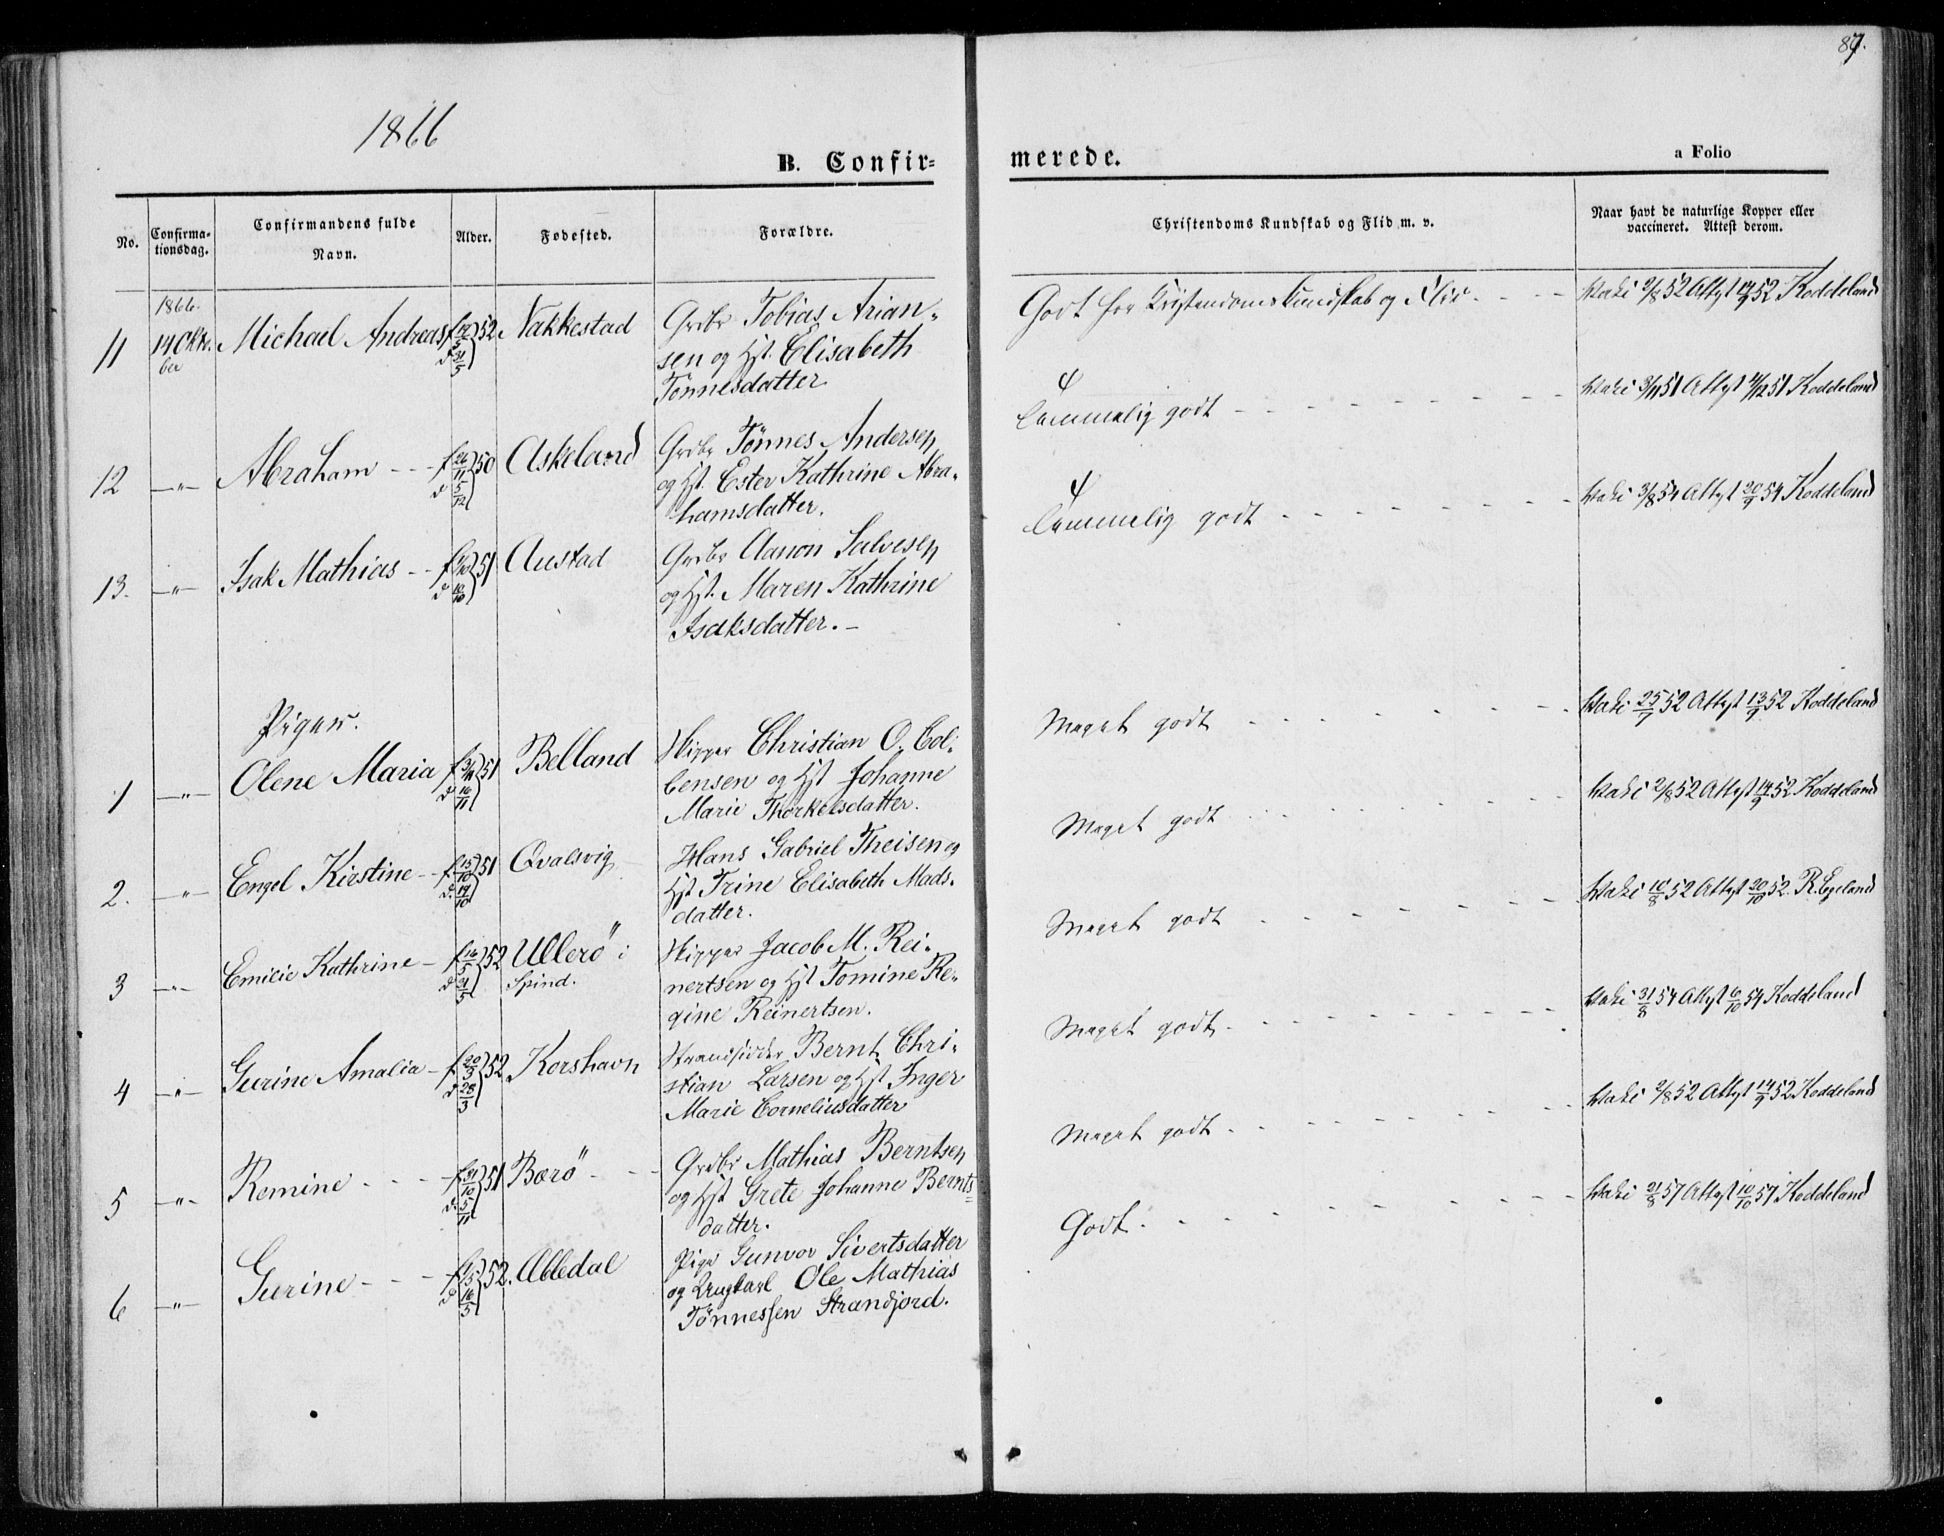 87.
1866
B. Confir-
merede.
a Folio
No.
Confirma-
tionsdag.
Confirmandens fulde
Navn.
Alder.
Fødested.
Forældre.
Christendoms Kundskab og Flid m. v.
Naar havt de naturlige Kopper eller
vaccineret. Attest derom.
1866.
11 14 Oktober Michael Andreas f 52 Nakkestad Grdbr Tobias Arian-
sen og Hst. Elisabeth
Tønnesdatter
Godt for Kristendomskundskab og Flid
Vakc 2/8 52 Attest 14/9 52 Koddeland
12 —"— Abraham f 26/11 d 5/12 50 Askeland Grdbr Tønnes Andersen
og Hst. Ester Kathrine Abra-
hamsdatter.
Temmelig godt
Vakc 51 Attest 51 Koddeland
13. —"— Isak Mathias 51 Austad Grdbr Aanon Salvesen
og Hst. Maren Kathrine
Isaksdatter.
Temmelig godt
Vakc 3/8 54 Attest 20/9 54 Koddeland
Piger.
1 —"— Olene Maria 51 Belland Skipper Christian O. Col-
bensen og Hst Johanne
Marie Thorkelsdatter.
Meget godt
Vakc 25/7 52 Attest 13/9 52 Koddeland
2. —"— Engel Kirstine f 15/10 d. 19/10 51 Qvalsvig Hans Gabriel Theisen og
Hst Trine Elisabeth Mads-
datter.
Meget godt
Vakc 2/8 52 Attest 14/9 52 Koddeland
3 —"— Emilie Kathrine f 16/5 d 31/5 52 Ullerø i
Spind.
Skipper Jacob M. Rei-
nertsen og Hst Tomine Re-
gine Reinertsen.
Meget godt
Vakc 10/8 52 Attest 20/10 52. R. Egeland
4 —"— Gurine Amalia f 20/3 d 28/3 52 Korshavn Strandsidder Bernt Chri-
stian Larsen og Hst Inger
Marie Corneliusdatter
Meget godt
Vakc 31/8 54 Attest 6/10 54 Koddeland
5 —"— Remine f 31/10 d. 5/11 51 Bærø Grdbr Mathias Berntsen
og Hst Grete Johanne Bernts-
datter.
Meget godt
Vakc 2/8 52 Attest 14/9 52 Koddeland
6 —"— Gurine d 16/5 52. Aldedal Pige Gunvor Sivertsdatter
og Ungkarl Ole Mathias
Tønnessen Strandjord.
Godt
Vakc 21/8 57 Attest 10/10 57 Koddeland